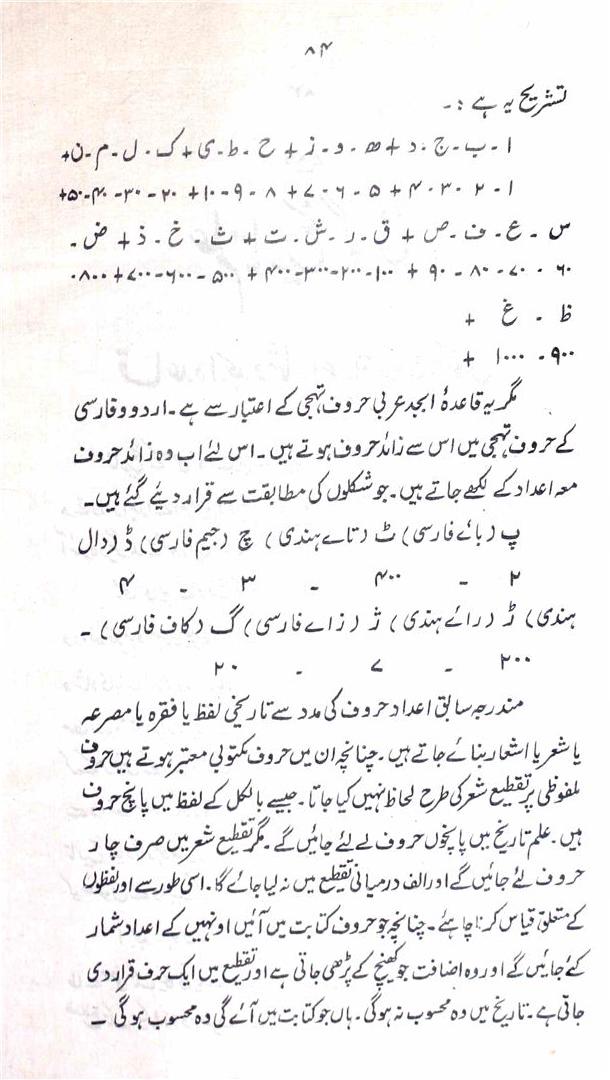 ۸۴
تشریح یہ ہے :۔
ا ۔ ب ۔ ج ۔ د + ھ ۔ و ۔ ز + ح ۔ ط ۔ ی + ک ۔ ل ۔ م ۔ ن +
۱ ۔ ۲ ۔ ۳ ۔ ۴ + ۵ ۔ ۶ ۔ ۷ + ۸ ۔ ۹ ۔ ۱۰ + ۲۰ ۔ ۳۰ ۔ ۴۰ ۔ ۵۰ +
س ۔ ع ۔ ف ۔ ص + ق ۔ ر ۔ ش ۔ ت + ث ۔ خ ۔ ذ + ض ۔
۶۰ ۔ ۷۰ ۔ ۸۰ ۔ ۹۰ + ۱۰۰ ۔ ۲۰۰ ۔ ۳۰۰ ۔ ۴۰۰ + ۵۰۰ ۔ ۶۰۰ ۔ ۷۰۰ + ۸۰۰ ۔
ظ ۔ غ +
۹۰۰ ۔ ۱۰۰۰ +
مگر یہ قاعدۂ ابجد عربی حروف تہجی کے اعتبار سے ہے ۔ اردو و فارسی
کے حروف تہجی میں اس سے زائد حروف ہوتے ہیں ۔ اس لئے اب وہ زائد حروف
معہ اعداد کے لکھے جاتے ہیں ۔ جو شکلوں کی مطابقت سے قرار دیئے گئے ہیں ۔
پ (بائے فارسی) ٹ (تاے ہندی) چ (جیم فارسی) ڈ (دال
۲ ۔ ۴۰۰ ۔ ۳ ۔ ۴
ہندی) ڑ (رائے ہندی) ژ (زاے فارسی) گ (کاف فارسی) ۔
۲۰۰ ۔ ۷ ۔ ۲۰
مندرجہ سابق اعداد حروف کی مدد سے تاریخی لفظ یا فقرہ یا مصرعہ
یا شعر یا اشعار بنائے جاتے ہیں ۔ چنانچہ ان میں حروف مکتوبی معتبر ہوتے ہیں حروف
ملفوظی پر تقطیع شعر کی طرح لحاظ نہیں کیا جاتا ۔ جیسے بالکل کے لفظ میں پانچ حروف
ہیں ۔ علم تاریخ میں پانچوں حروف لے لئے جائیں گے ۔ مگر تقطیع شعر میں صرف چار
حروف لئے جائیں گے اور الف درمیانی تقطیع میں نہ لیا جائے گا ۔ اسی طور سے اور لفظوں
کے متعلق قیاس کرنا چاہئے ۔ چنانچہ جو حروف کتابت میں آئیں اونہیں کے اعداد شمار
کئے جائیں گے اور وہ اضافت جو کھینچ کے پڑھی جاتی ہے اور تقطیع میں ایک حرف قرار دی
جاتی ہے ۔ تاریخ میں وہ محسوب نہ ہوگی ۔ ہاں جو کتابت میں آئے گی وہ محسوب ہوگی ۔